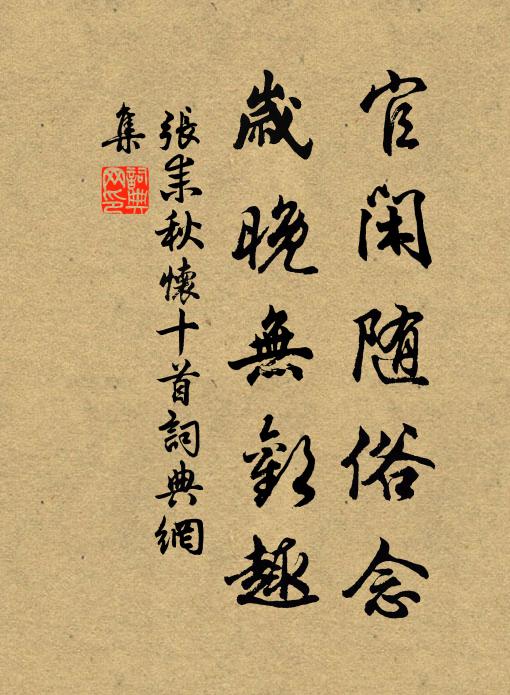 官閑随俗念
歲晚無歡趣
張耒秋懷十首詞典網
集
詞典
网印